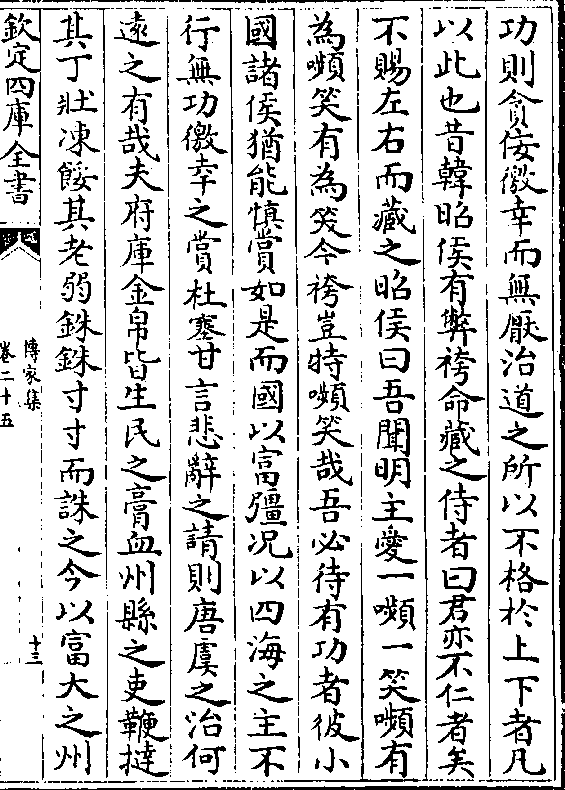 功則貪佞徼幸而無厭治道之所以不格於上下者凡
以此也昔韓昭侯有弊袴命藏之侍者曰君亦不仁者矣
不賜左右而藏之昭侯曰吾聞明主愛一嚬一笑嚬有
為嚬笑有為笑今袴豈特嚬笑哉吾必待有功者彼小
國諸侯猶能慎賞如是而國以富彊况以四海之主不
行無功徼幸之賞杜塞甘言悲辭之請則唐虞之治何
遠之有哉夫府庫金帛皆生民之膏血州縣之吏鞭撻
其丁壯凍餒其老弱銖銖寸寸而誅之今以富大之州
欽定四庫全書
傳家集
卷二十五
十三